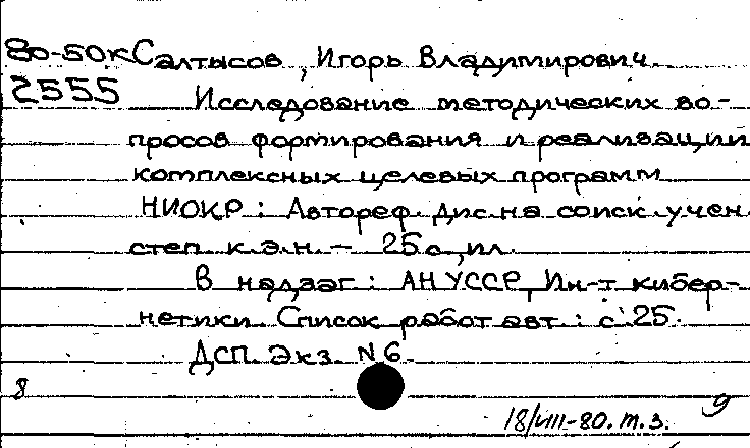 80-50к Салтысов, Игорь Владимирович.
2555
Исследование методических во-
просов формирования и реализации
комплексных целевых программ
НИОКР: Автореф. дис. на соиск. учен.
степ. к.э.н. – 25 с., ил.
В надзаг.: АН УССР, Ин-т кибер-
нетики. Список работ авт.: с. 25.
ДСП. Экз. N 6.
8
9
18/VIII-80. т.з.